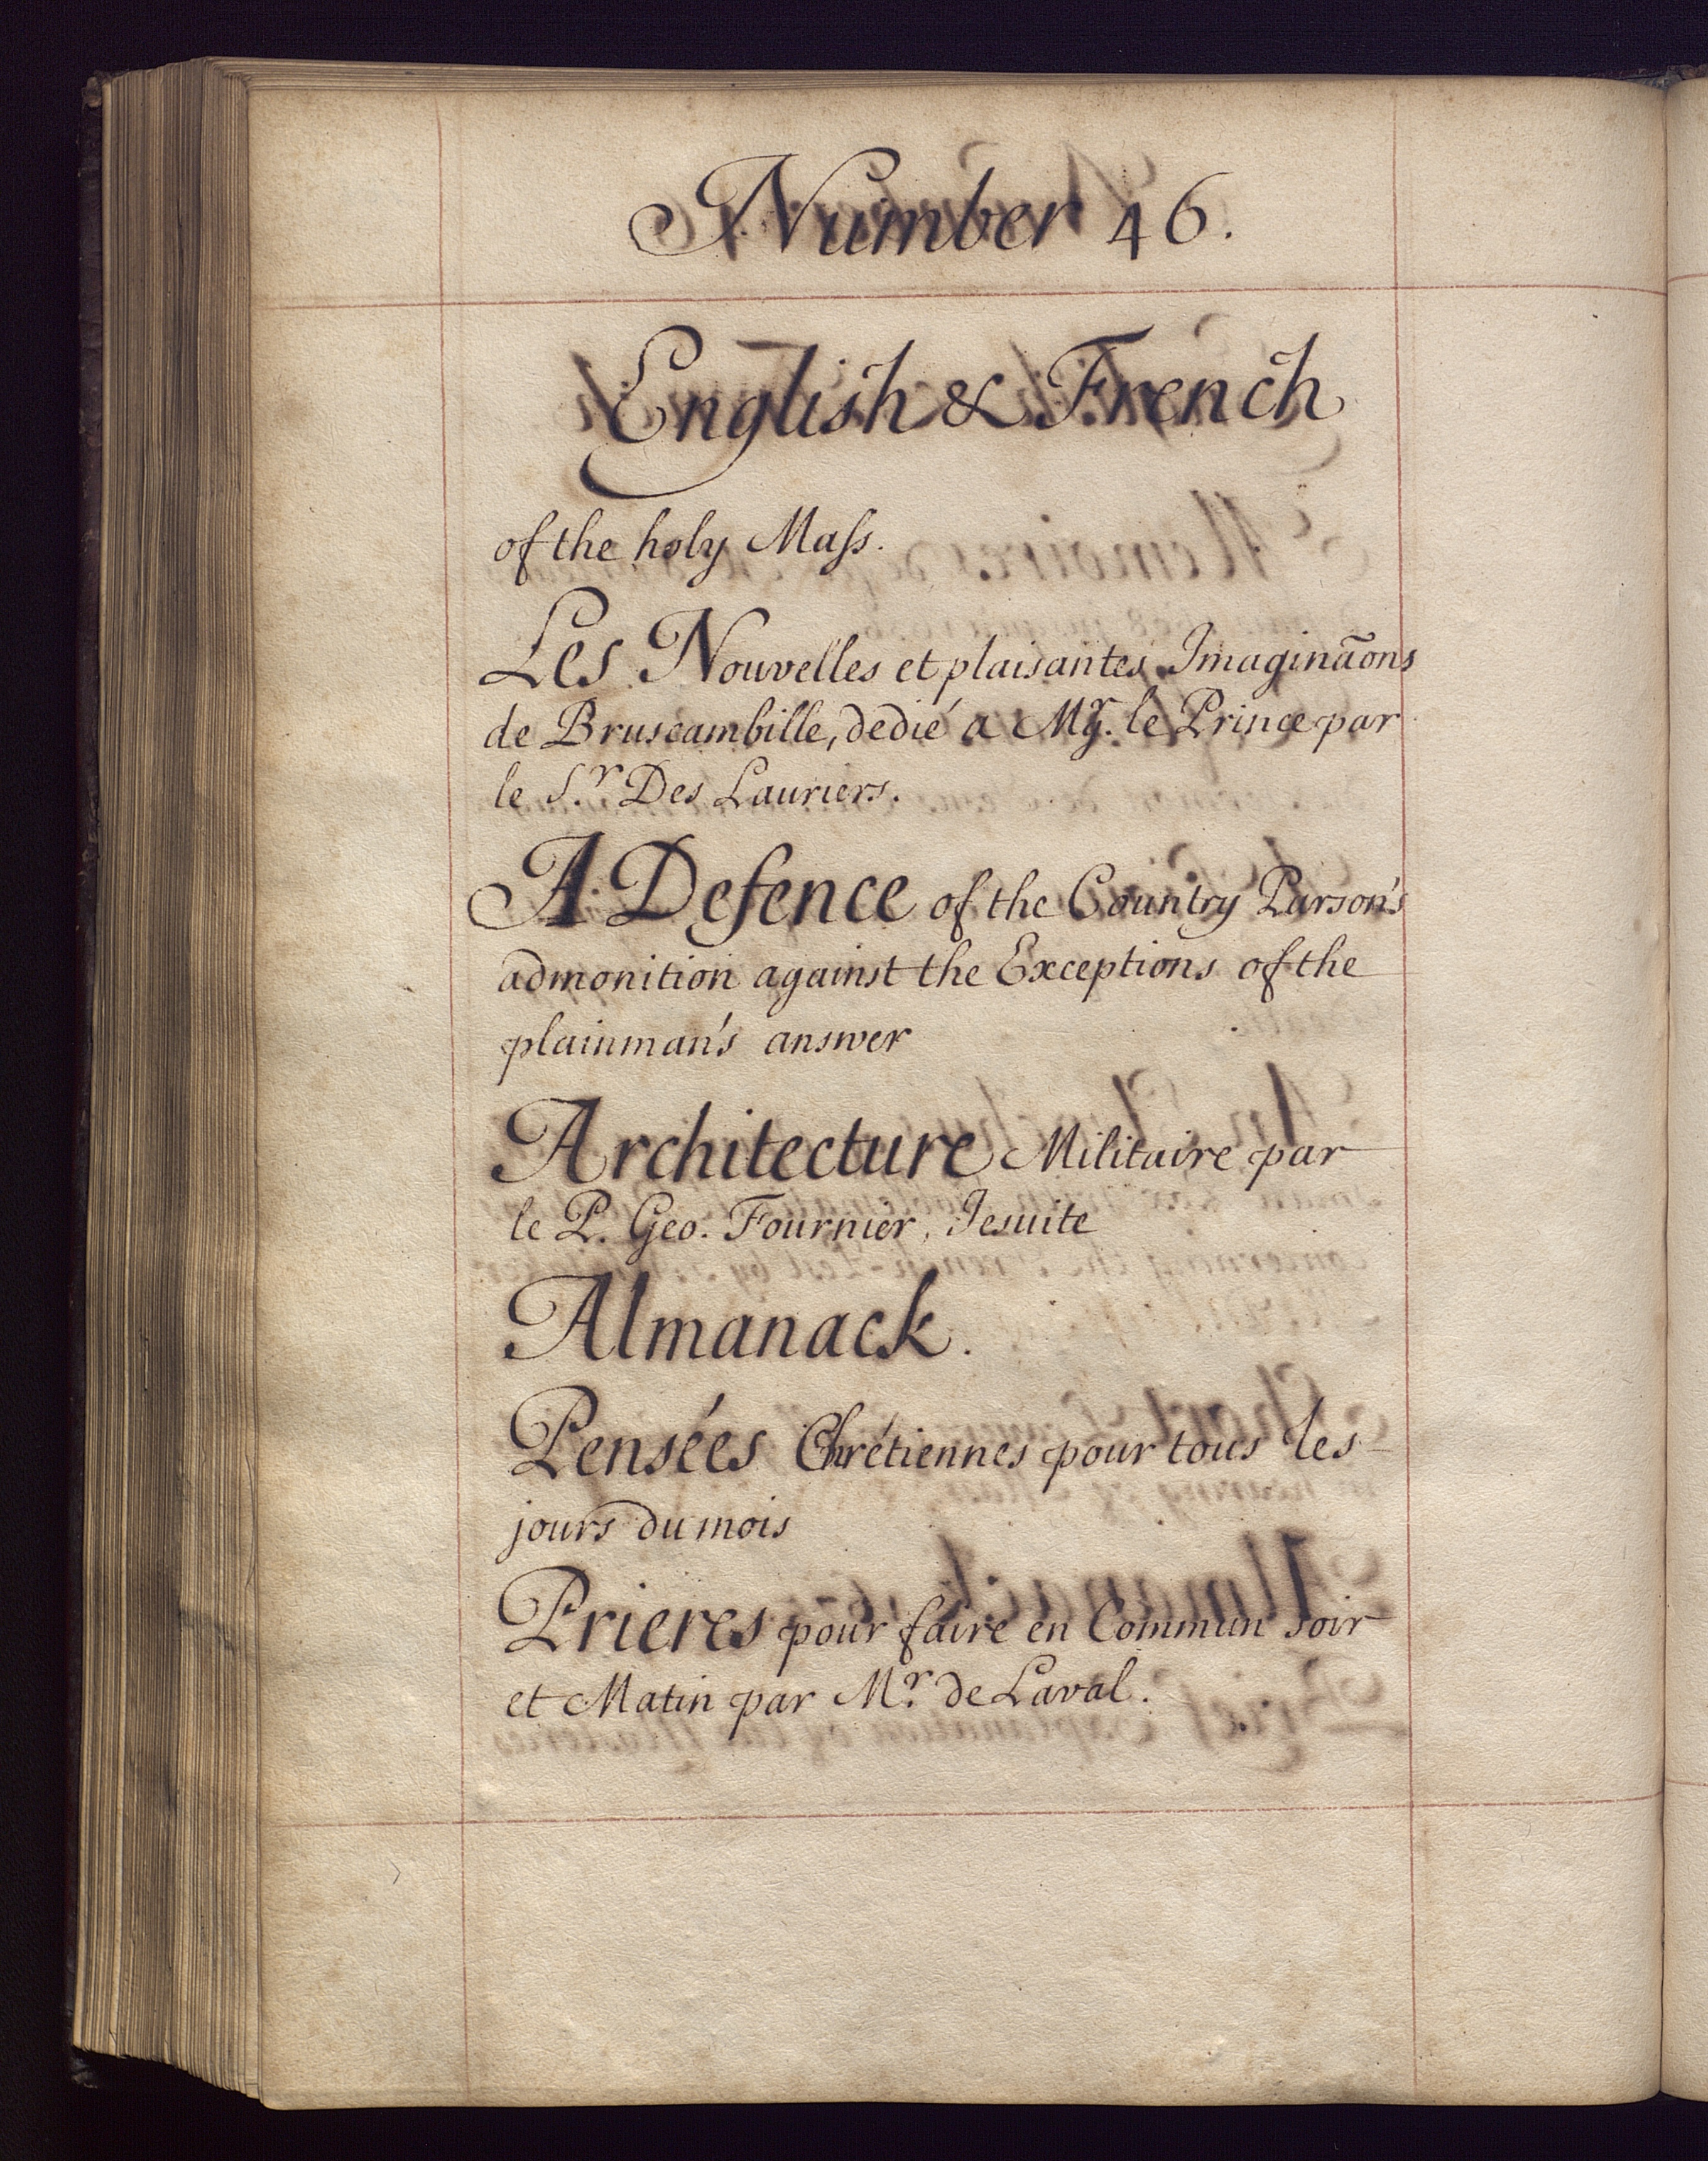 Number 46.
English & French
of the holy Maſs.
Les Nouvelles et plaisantes Imaginãons
de Bruscambille, dedié a Mgr. le Prince par
le Sr. Des Lauriers.
A Defence of the Country Parson's
admonition against the Exceptions of the
plainman's answer
Architecture Militaire par
le P. Geo. Fournier, Jesuite
Almanack.
Pensées Chrétiennes pour tous les
jours du mois
Prieres pour faire en Commun soir
et Matin par Mr. de Laval.